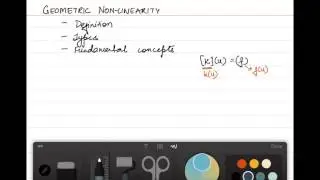 GEOMETRIC NON-LINEARITY
- Definition
- Types
- Fundamental concepts
[K](u) = (f)
k(u)
f(u)